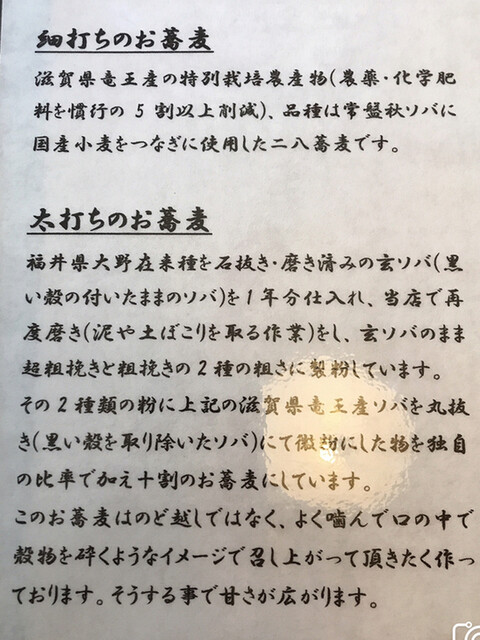 細打ちのお蕎麦
滋賀県竜王産の特別栽培農産物(農薬・化学肥
料を慣行の5割以上削減)、品種は常盤秋ソバに
国産小麦をつなぎに使用した二八蕎麦です。
太打ちのお蕎麦
福井県大野在来種を石抜き・磨き済みの玄ソバ(黒
い殻の付いたままのソバ)を1年分仕入れ、当店で再
度磨き(泥や土ぼこりを取る作業)をし、玄ソバのまま
超粗挽きと粗挽きの2種の粗さに製粉しています。
その2種類の粉に上記の滋賀県竜王産ソバを丸抜
き(黒い殻を取り除いたソバ)にて微粉にした物を独自
の比率で加え十割のお蕎麦にしています。
このお蕎麦はのど越しではなく、よく噛んで口の中で
穀物を砕くようなイメージで召し上がって頂きたく作っ
ております。そうする事で甘さが広がります。